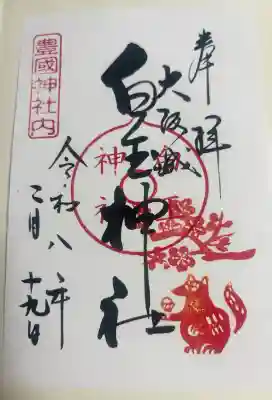 奉拝
大阪城
白玉神社
白玉
神社
令和八年
二月十九日
豊國神社内